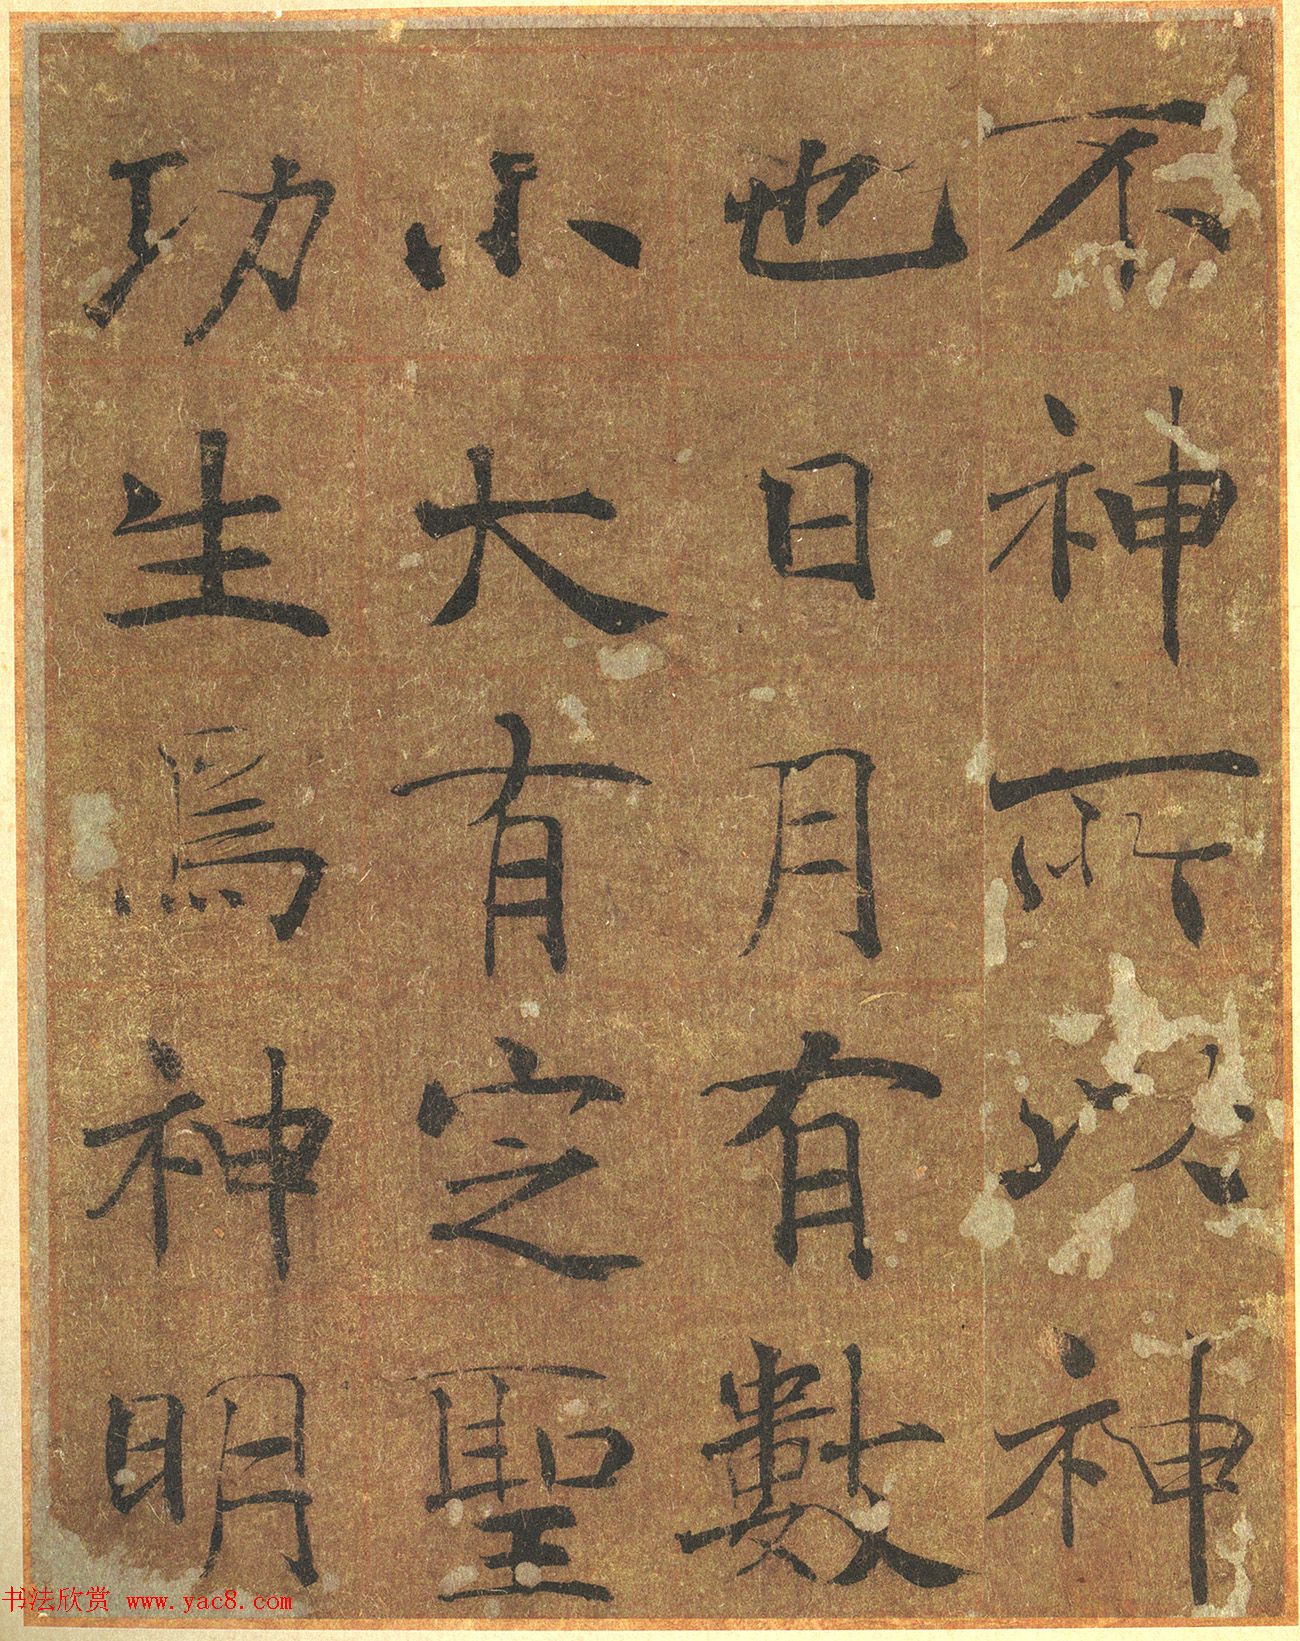 不神所以神
也日月有數
小大有定聖
功生焉神明
书法欣赏 www.yac8.com